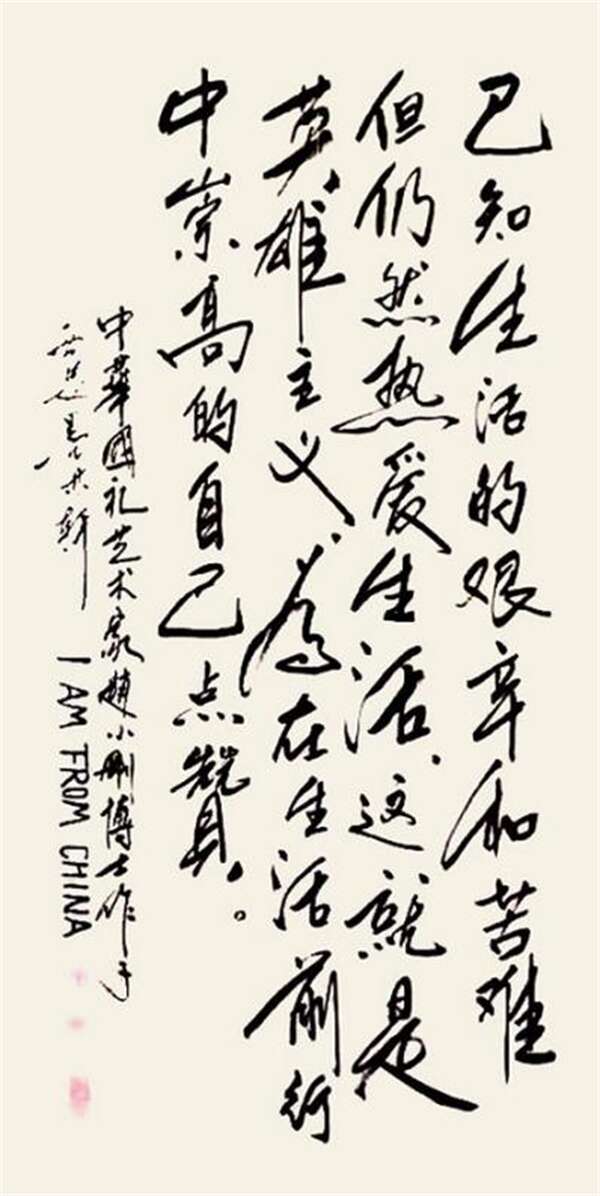 已知生活的艰辛和苦难
但仍然热爱生活,这就是
英雄主义,为在生活前行
中崇高的自己点赞。
中華國礼艺术家趙小刚博士作于
I AM FROM CHINA